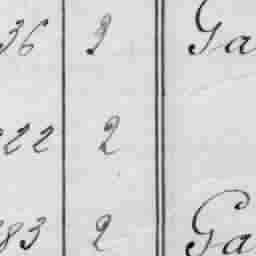 36 3 Ga
222 2
83 2 Ga